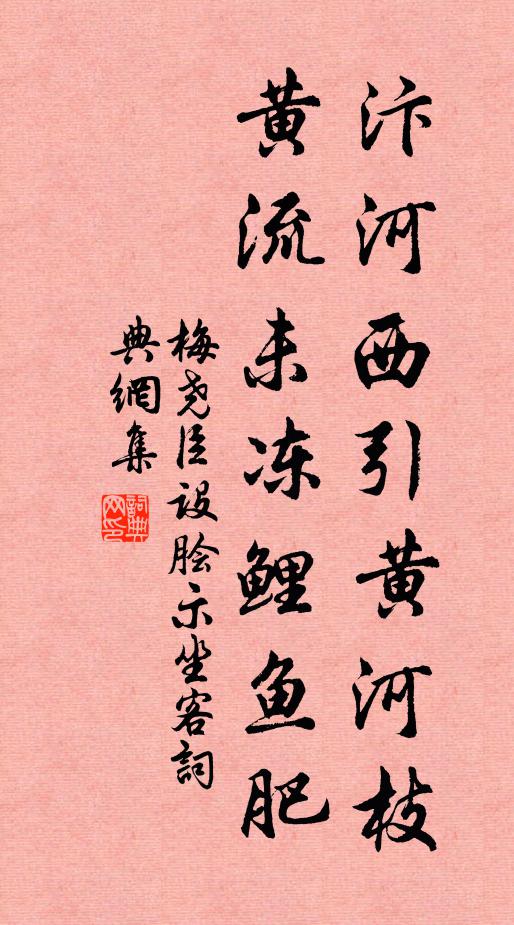 汴河西引黄河枝
黄流未冻鲤鱼肥
梅尧臣设脍示坐客詞
典網集
詞典网印